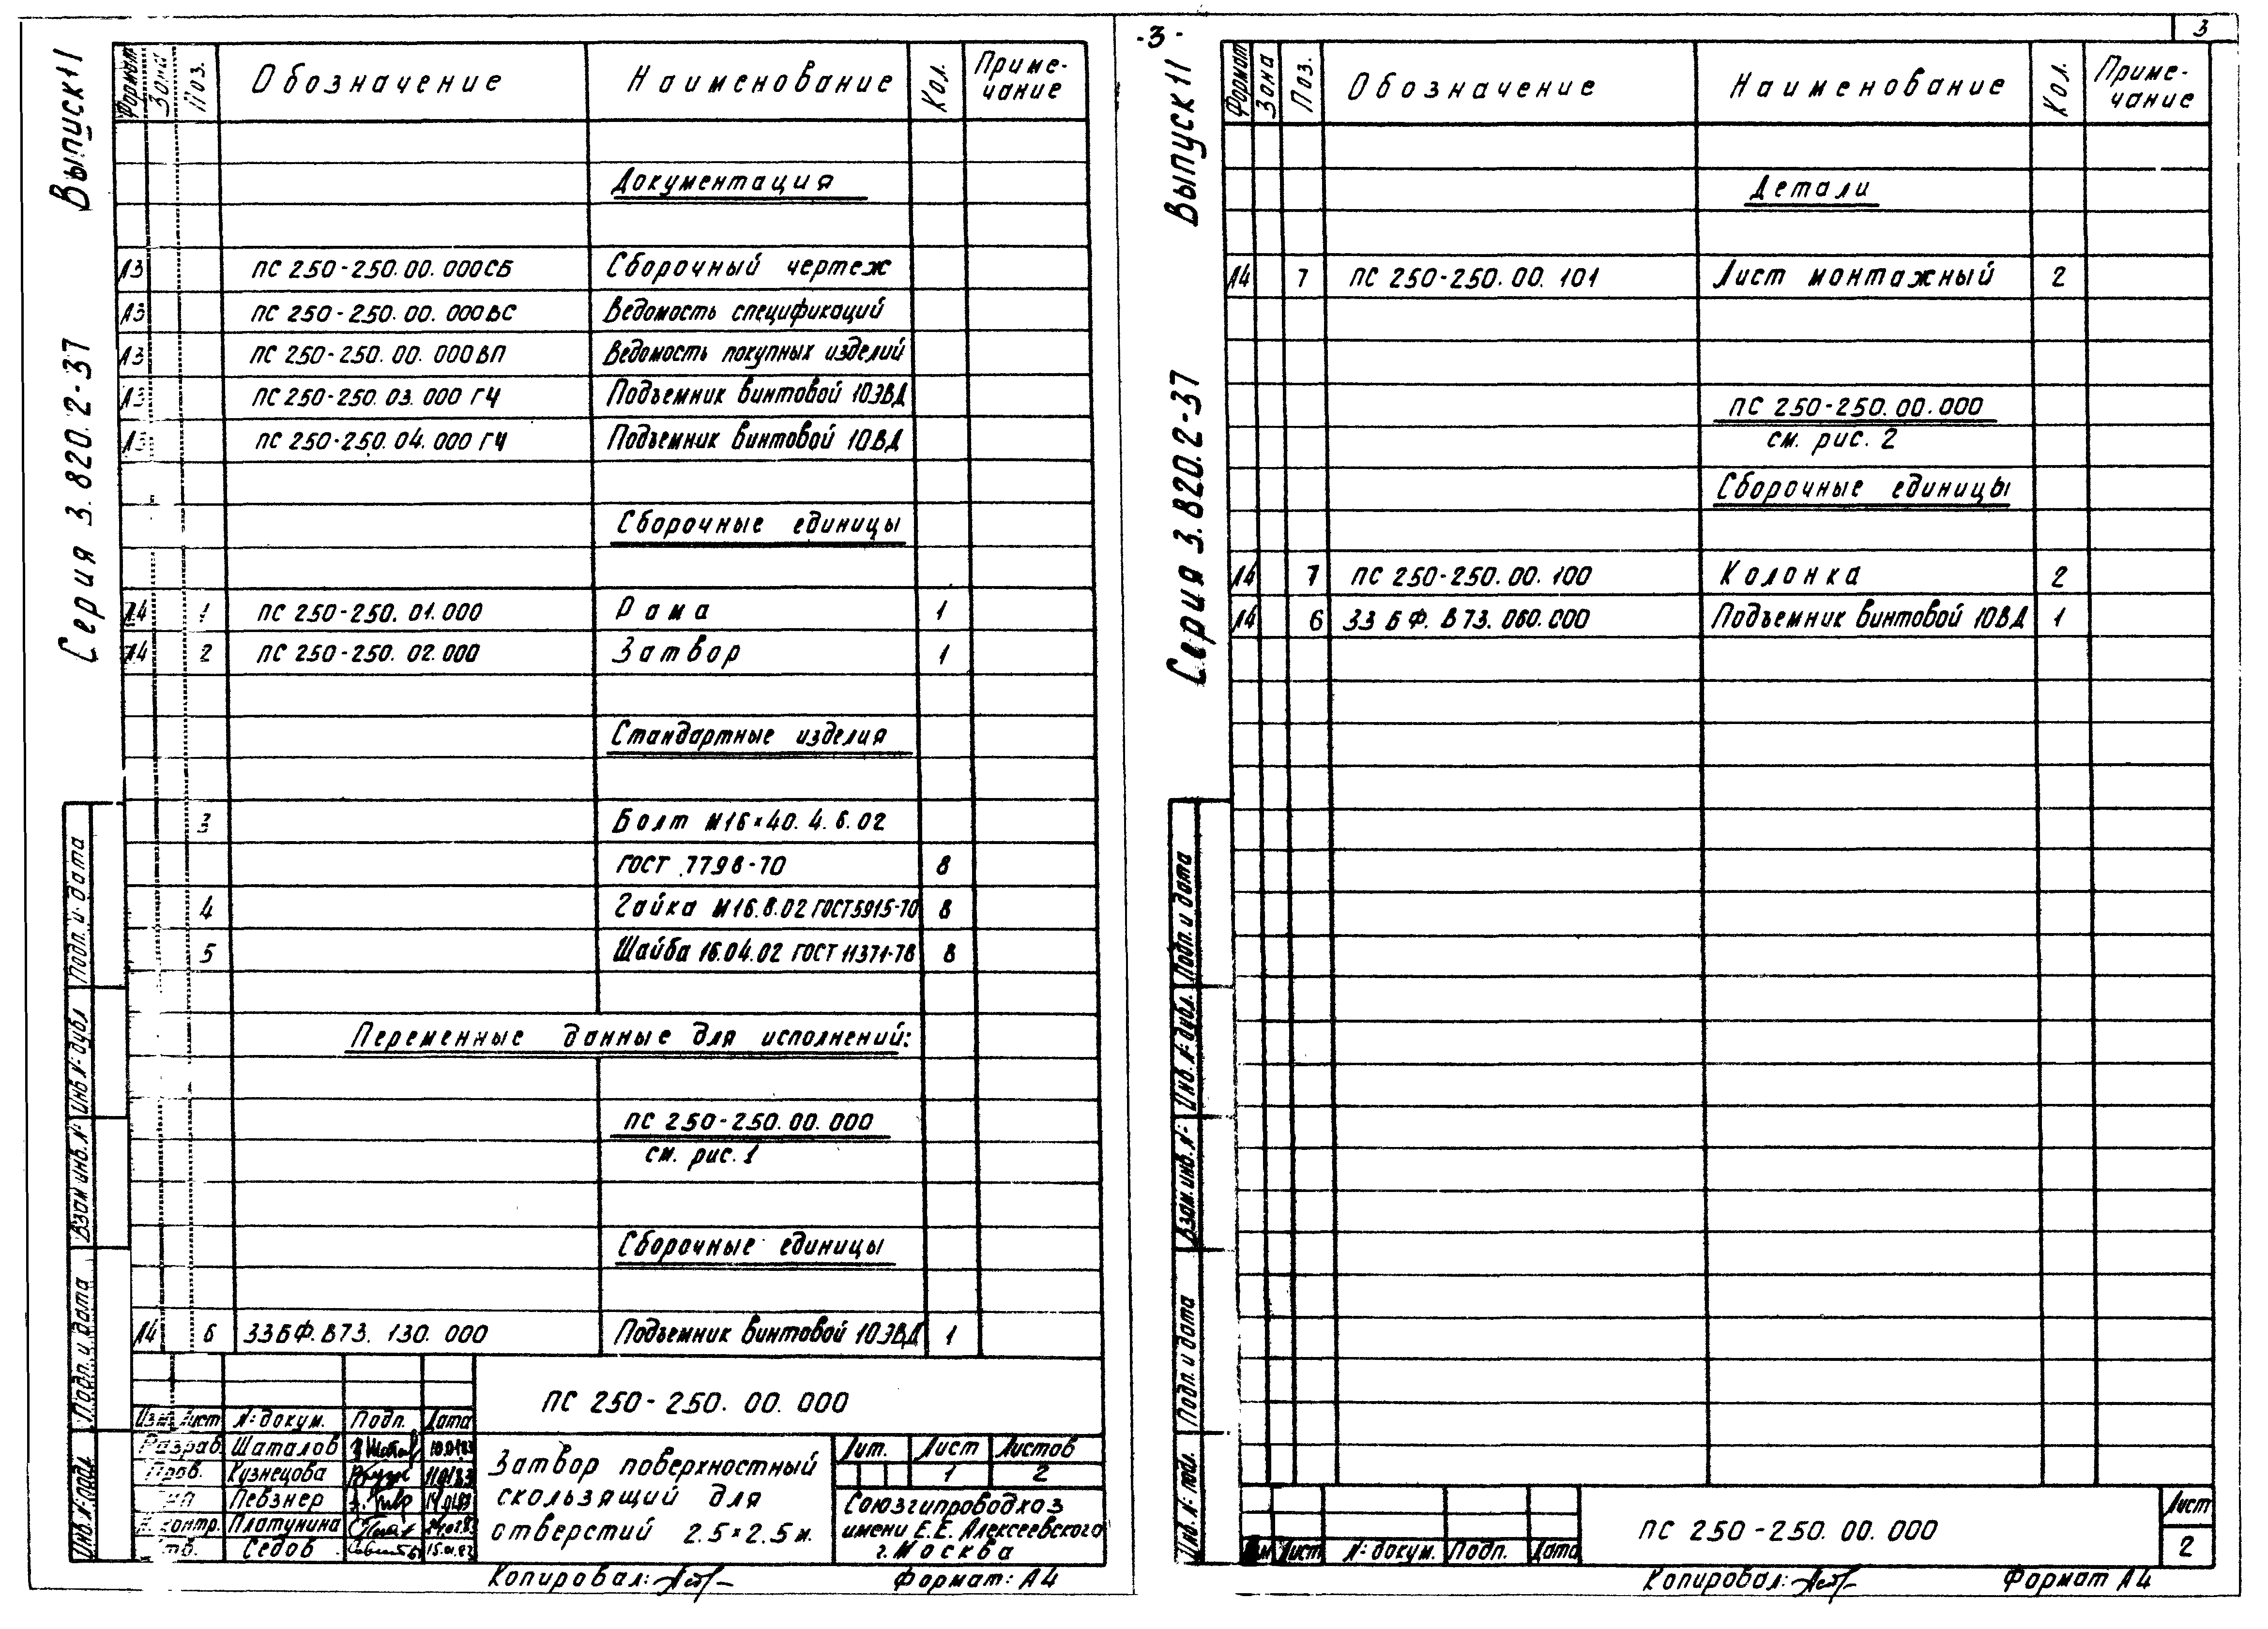 -3-
3
Выпуск 11
Серия 3.820.2-37
Формат Зона Поз. Обозначение Наименование Кол. Приме-
чание
Документация
А3 ПС 250-250.00.000СБ Сборочный чертеж
А3 ПС 250-250.00.000ВС Ведомость спецификаций
А3 ПС 250-250.00.000ВП Ведомость покупных изделий
А3 ПС 250-250.03.000 ГЧ Подъемник винтовой 10ЭВД
А3 ПС 250-250.04.000 ГЧ Подъемник винтовой 10ВД
Сборочные единицы
А4 1 ПС 250-250.01.000 Рама 1
А4 2 ПС 250-250.02.000 Затвор 1
Стандартные изделия
3 Болт М16×40.4.6.02
ГОСТ 7798-70 8
4 Гайка М16.8.02 ГОСТ5915-70 8
5 Шайба 16.04.02 ГОСТ 11371-78 8
Переменные данные для исполнений:
ПС 250-250.00.000
см. рис. 1
Сборочные единицы
А4 6 33БФ.В73.130.000 Подъемник винтовой 10ЭВД 1
Подп. и дата
Инв.№ дубл
Взам инв.№
Подп. и дата
Инв.№ подл
ПС 250-250.00.000
Изм Лист №докум. Подп. Дата
Разраб. Шаталов
Пров. Кузнецова
Певзнер
Н.контр. Платунина
Утв. Седов
Затвор поверхностный
скользящий для
отверстий 2.5×2.5 м.
Лит. Лист Листов
1 2
Союзгипроводхоз
имени Е.Е. Алексеевского
г.Москва
Копировал: Формат: А4
Выпуск 11
Серия 3.820.2-37
Формат Зона Поз. Обозначение Наименование Кол. Приме-
чание
Детали
А4 7 ПС 250-250.00.101 Лист монтажный 2
ПС 250-250.00.000
см. рис. 2
Сборочные единицы
А4 7 ПС 250-250.00.100 Колонка 2
А4 6 33 БФ.В73.060.000 Подъемник винтовой 10ВД 1
Подп. и дата
Инв.№ дубл.
Взам.инв.№
Подп. и дата
Инв.№ подл.
Изм Лист №докум. Подп. Дата
ПС 250-250.00.000
Лист
2
Копировал: Формат А4